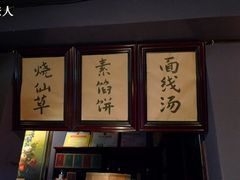 烧仙草
素馅饼
面线汤